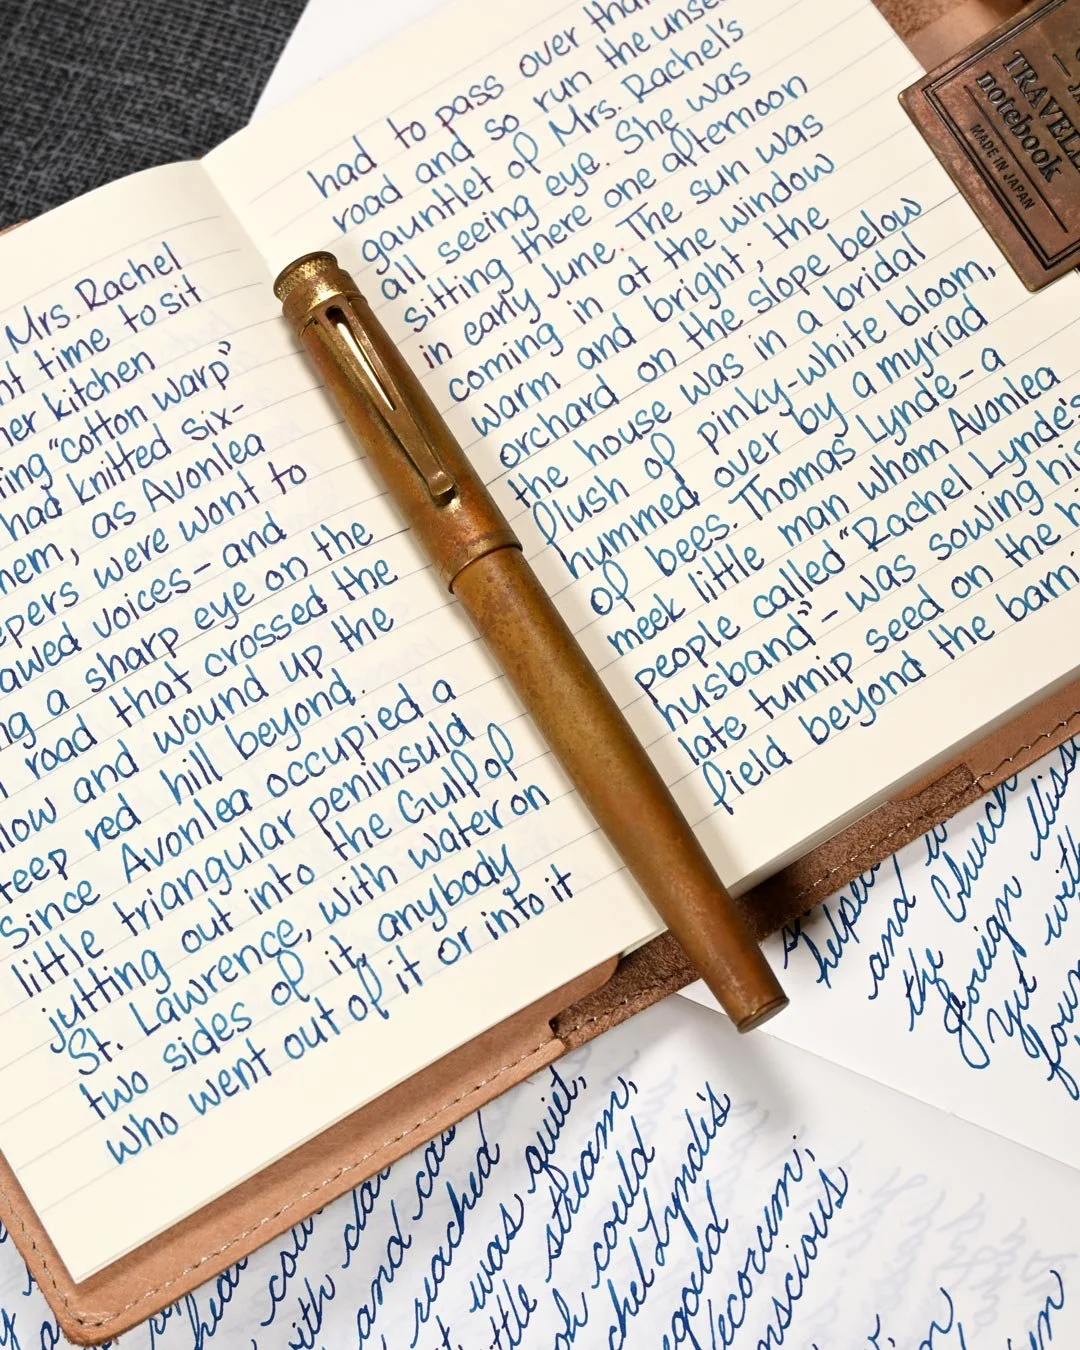 Mrs. Rachel
time to sit
her kitchen
"cotton warp"
had knitted six-
as Avonlea
were wont to
awed voices- and
a sharp eye on the
road that crossed the
and wound up the
red hill beyond.
Since Avonlea occupied a
little triangular peninsula
jutting out into the Gulf of
St. Lawrence, with water on
two sides of it, anybody
who went out of it or into it
had to pass over that
road and so run the
gauntlet of Mrs. Rachel's
all seeing eye. She was
sitting there one afternoon
in early June. The sun was
coming in at the window
warm and bright; the
orchard on the slope below
the house was in a bridal
flush of pinky-white bloom,
hummed over by a myriad
of bees. Thomas Lynde- a
meek little man whom Avonlea
people called "Rachel Lynde's
husband"- was sowing his
late turnip seed on the
field beyond the barn
TRAVEL
notebook
MADE IN JAPAN
and
the Church
foreign
Yet with
quiet,
and reached
was
stream,
with could
Lynde's
decorum;